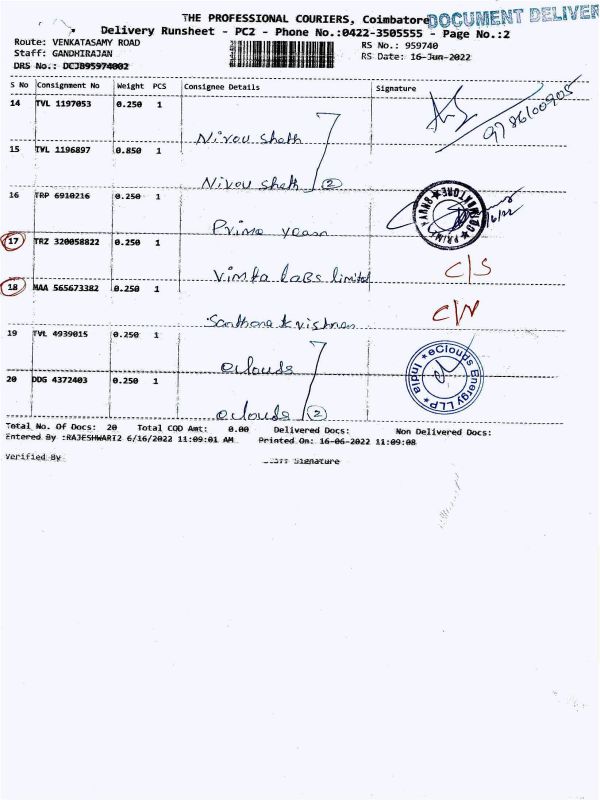 THE PROFESSIONAL COURIERS, Coimbatore
DOCUMENT DELIVER
Delivery Runsheet - PC2 - Phone No.:0422-3505555 - Page No.:2
Route: VENKATASAMY ROAD
RS No.: 959740
Staff: GANDHIRAJAN
RS Date: 16-Jun-2022
DRS No.: DCJB95974002
S No Consignment No Weight PCS Consignee Details Signature
14 TVL 1197053 0.250 1
9786100905
Nirou sheth
15 TVL 1196897 0.850 1
Nirou sheth 2
16 TRP 6910216 0.250 1
Prime yean
17 TRZ 320058822 0.250 1
Vimta Labs limited
C/S
18 MAA 565673382 0.250 1
C/N
19 TVL 4939015 0.250 1
eclouds
eClouds Energy LLP * India *
20 DDG 4372403 0.250 1
eclouds 2
Total No. Of Docs: 20 Total COD Amt: 0.00 Delivered Docs: Non Delivered Docs:
Entered By :RAJESHWARI2 6/16/2022 11:09:01 AM Printed On: 16-06-2022 11:09:08
Verified By Signature